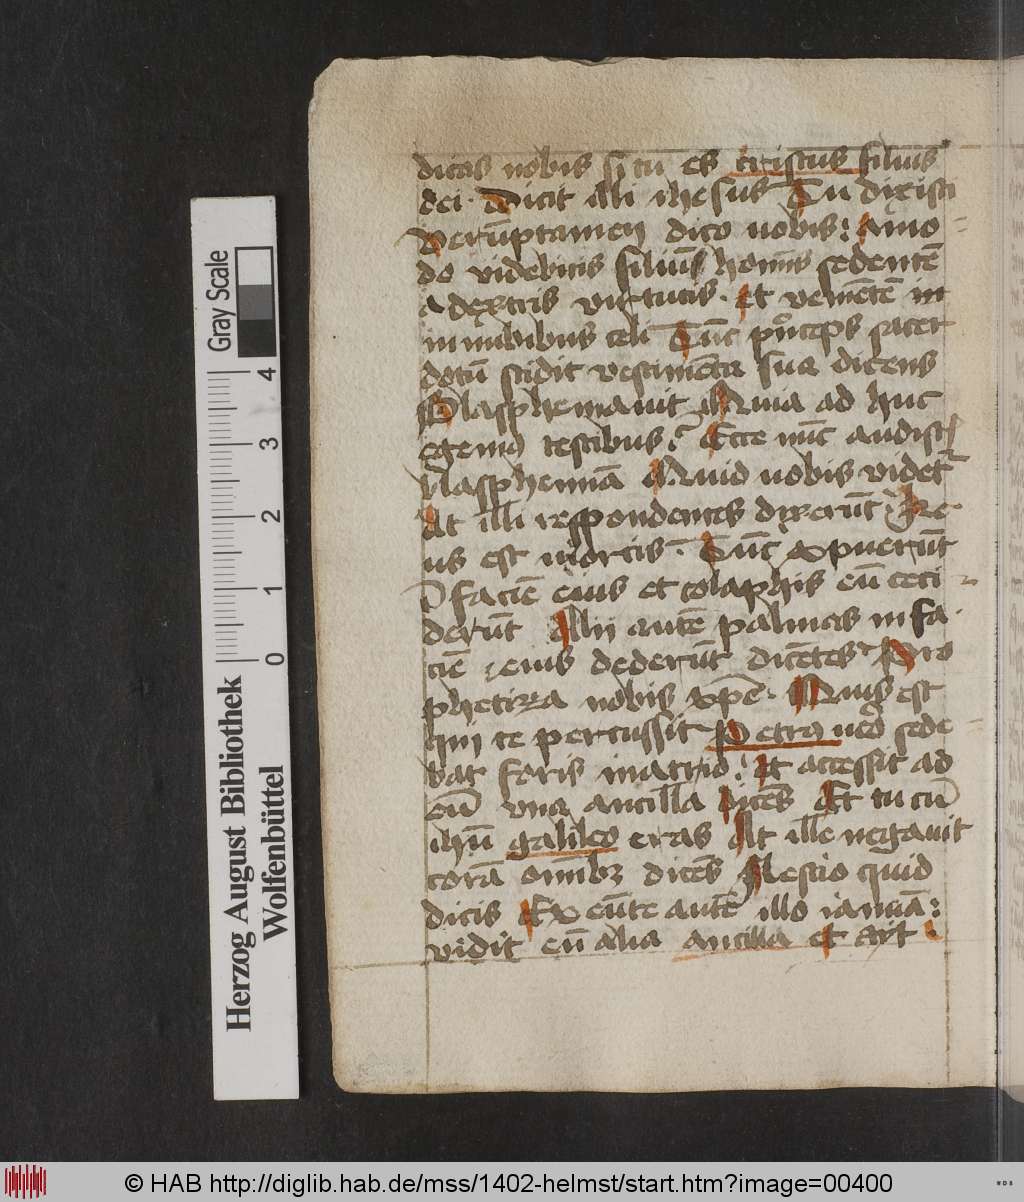 dicas nobis si tu es cristus filius
dei. Dicit illi ihesus Tu dixisti
Verūptamen dico nobis: Amo
do videbitis filiūs homīs sedentē
a dextris virtutis. Et veniētē in
in nubibus celi Tūc prīceps sacer
dotū scidit vestimēta sua dicens
Blasphemauit Quid ad huc
egemꝰ testibus? Ecce nūc audistis
blasphemiā Quid uobis videtr
At illi respondentes dixerūt: Re
us est mortis. Tūc expuerūt
ī faciē eius et colaphis eū ceci
derūt Alii autē palmas in fa
ciē eius dederūt dicētes Pro
phetiza nobis xpē. Quis est
qui te percussit Petrꝰ uero sede
bat foris in atrio: Et accessit ad
eū vna ancilla dicēs Et tu cū
ihū galileo eras At ille negauit
corā omibꝫ dicēs Nescio quid
dicis Exeūte autē illo ianuā:
vidit eū alia ancilla et ayt
Gray Scale
4
3
2
1
0
Herzog August Bibliothek
Wolfenbüttel
© HAB http://diglib.hab.de/mss/1402-helmst/start.htm?image=00400